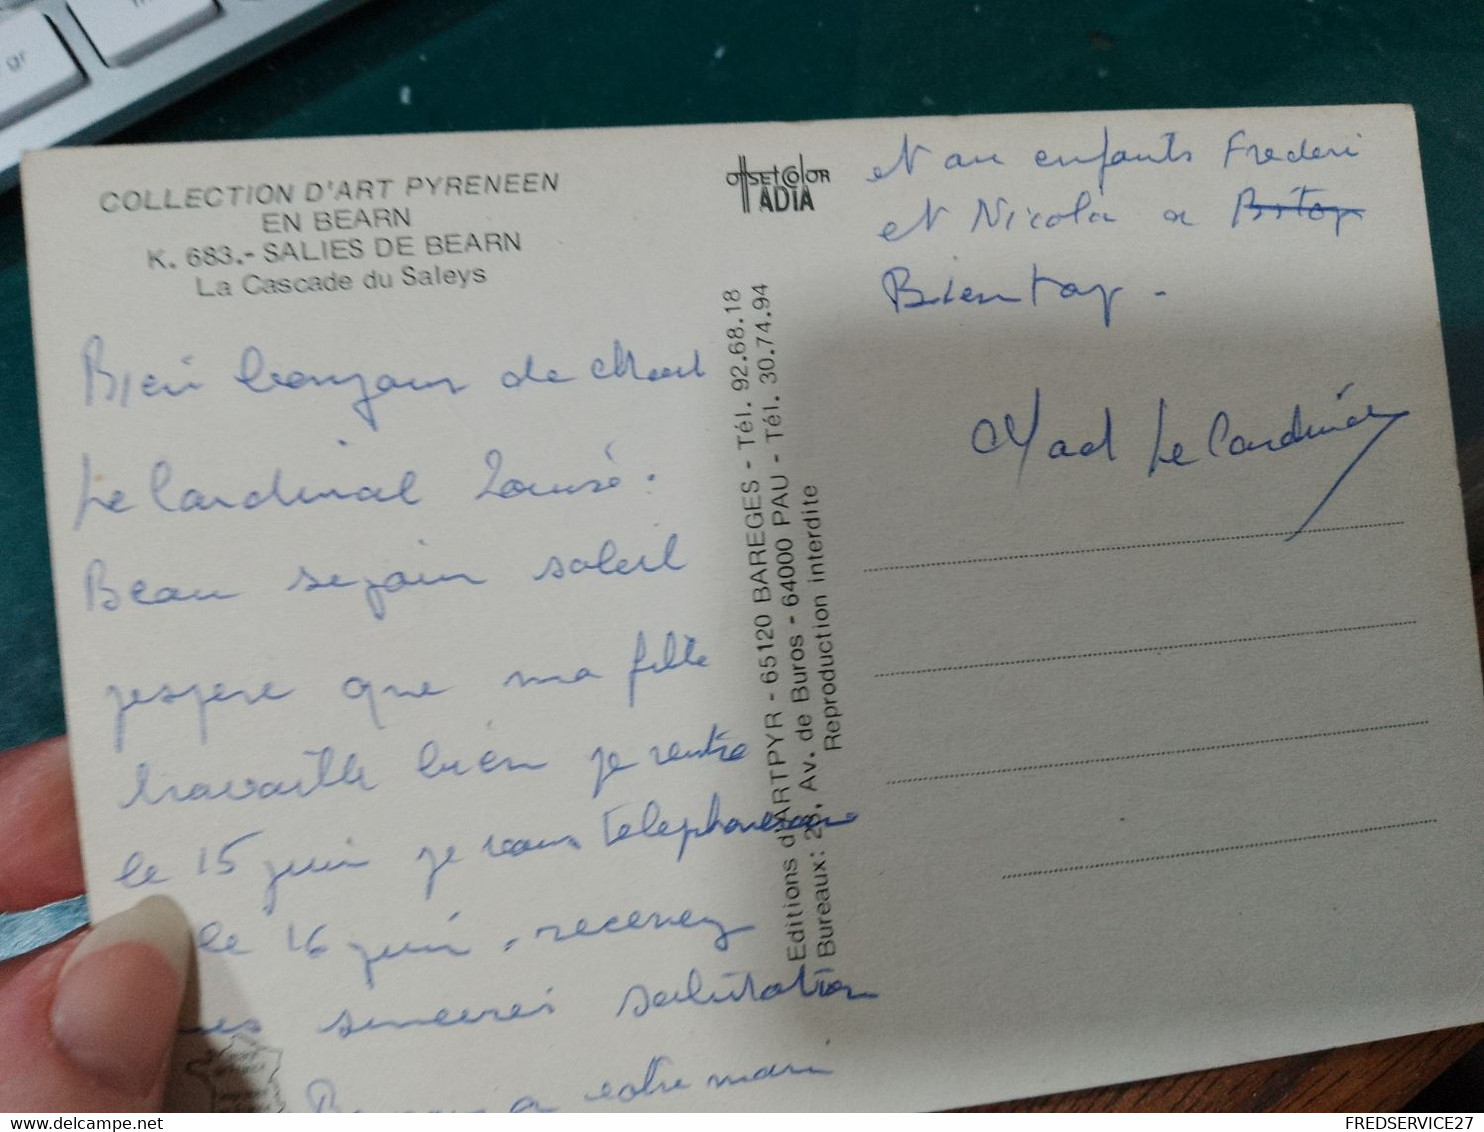 COLLECTION D'ART PYRENEEN
EN BEARN
K. 683.- SALIES DE BEARN
La Cascade du Saleys
OffSEtCOlOR
ADIA
Bien bonjour de
Le Cardinal Louise.
Beau sejour soleil
jespere que ma fille
travaille bien je rentre
le 15 juin je vous telephonerai
le 16 juin, recevez
mes sinceres salutation
a votre mari
Editions d'ARTPYR - 65120 BAREGES - Tél. 92.68.18
Bureaux: 28, Av. de Buros - 64000 PAU - Tél. 30.74.94
Reproduction interdite
et au enfants Frederi
et Nicola a
Bientop -
Mad Le Cardinal
gr
FREDSERVICE27